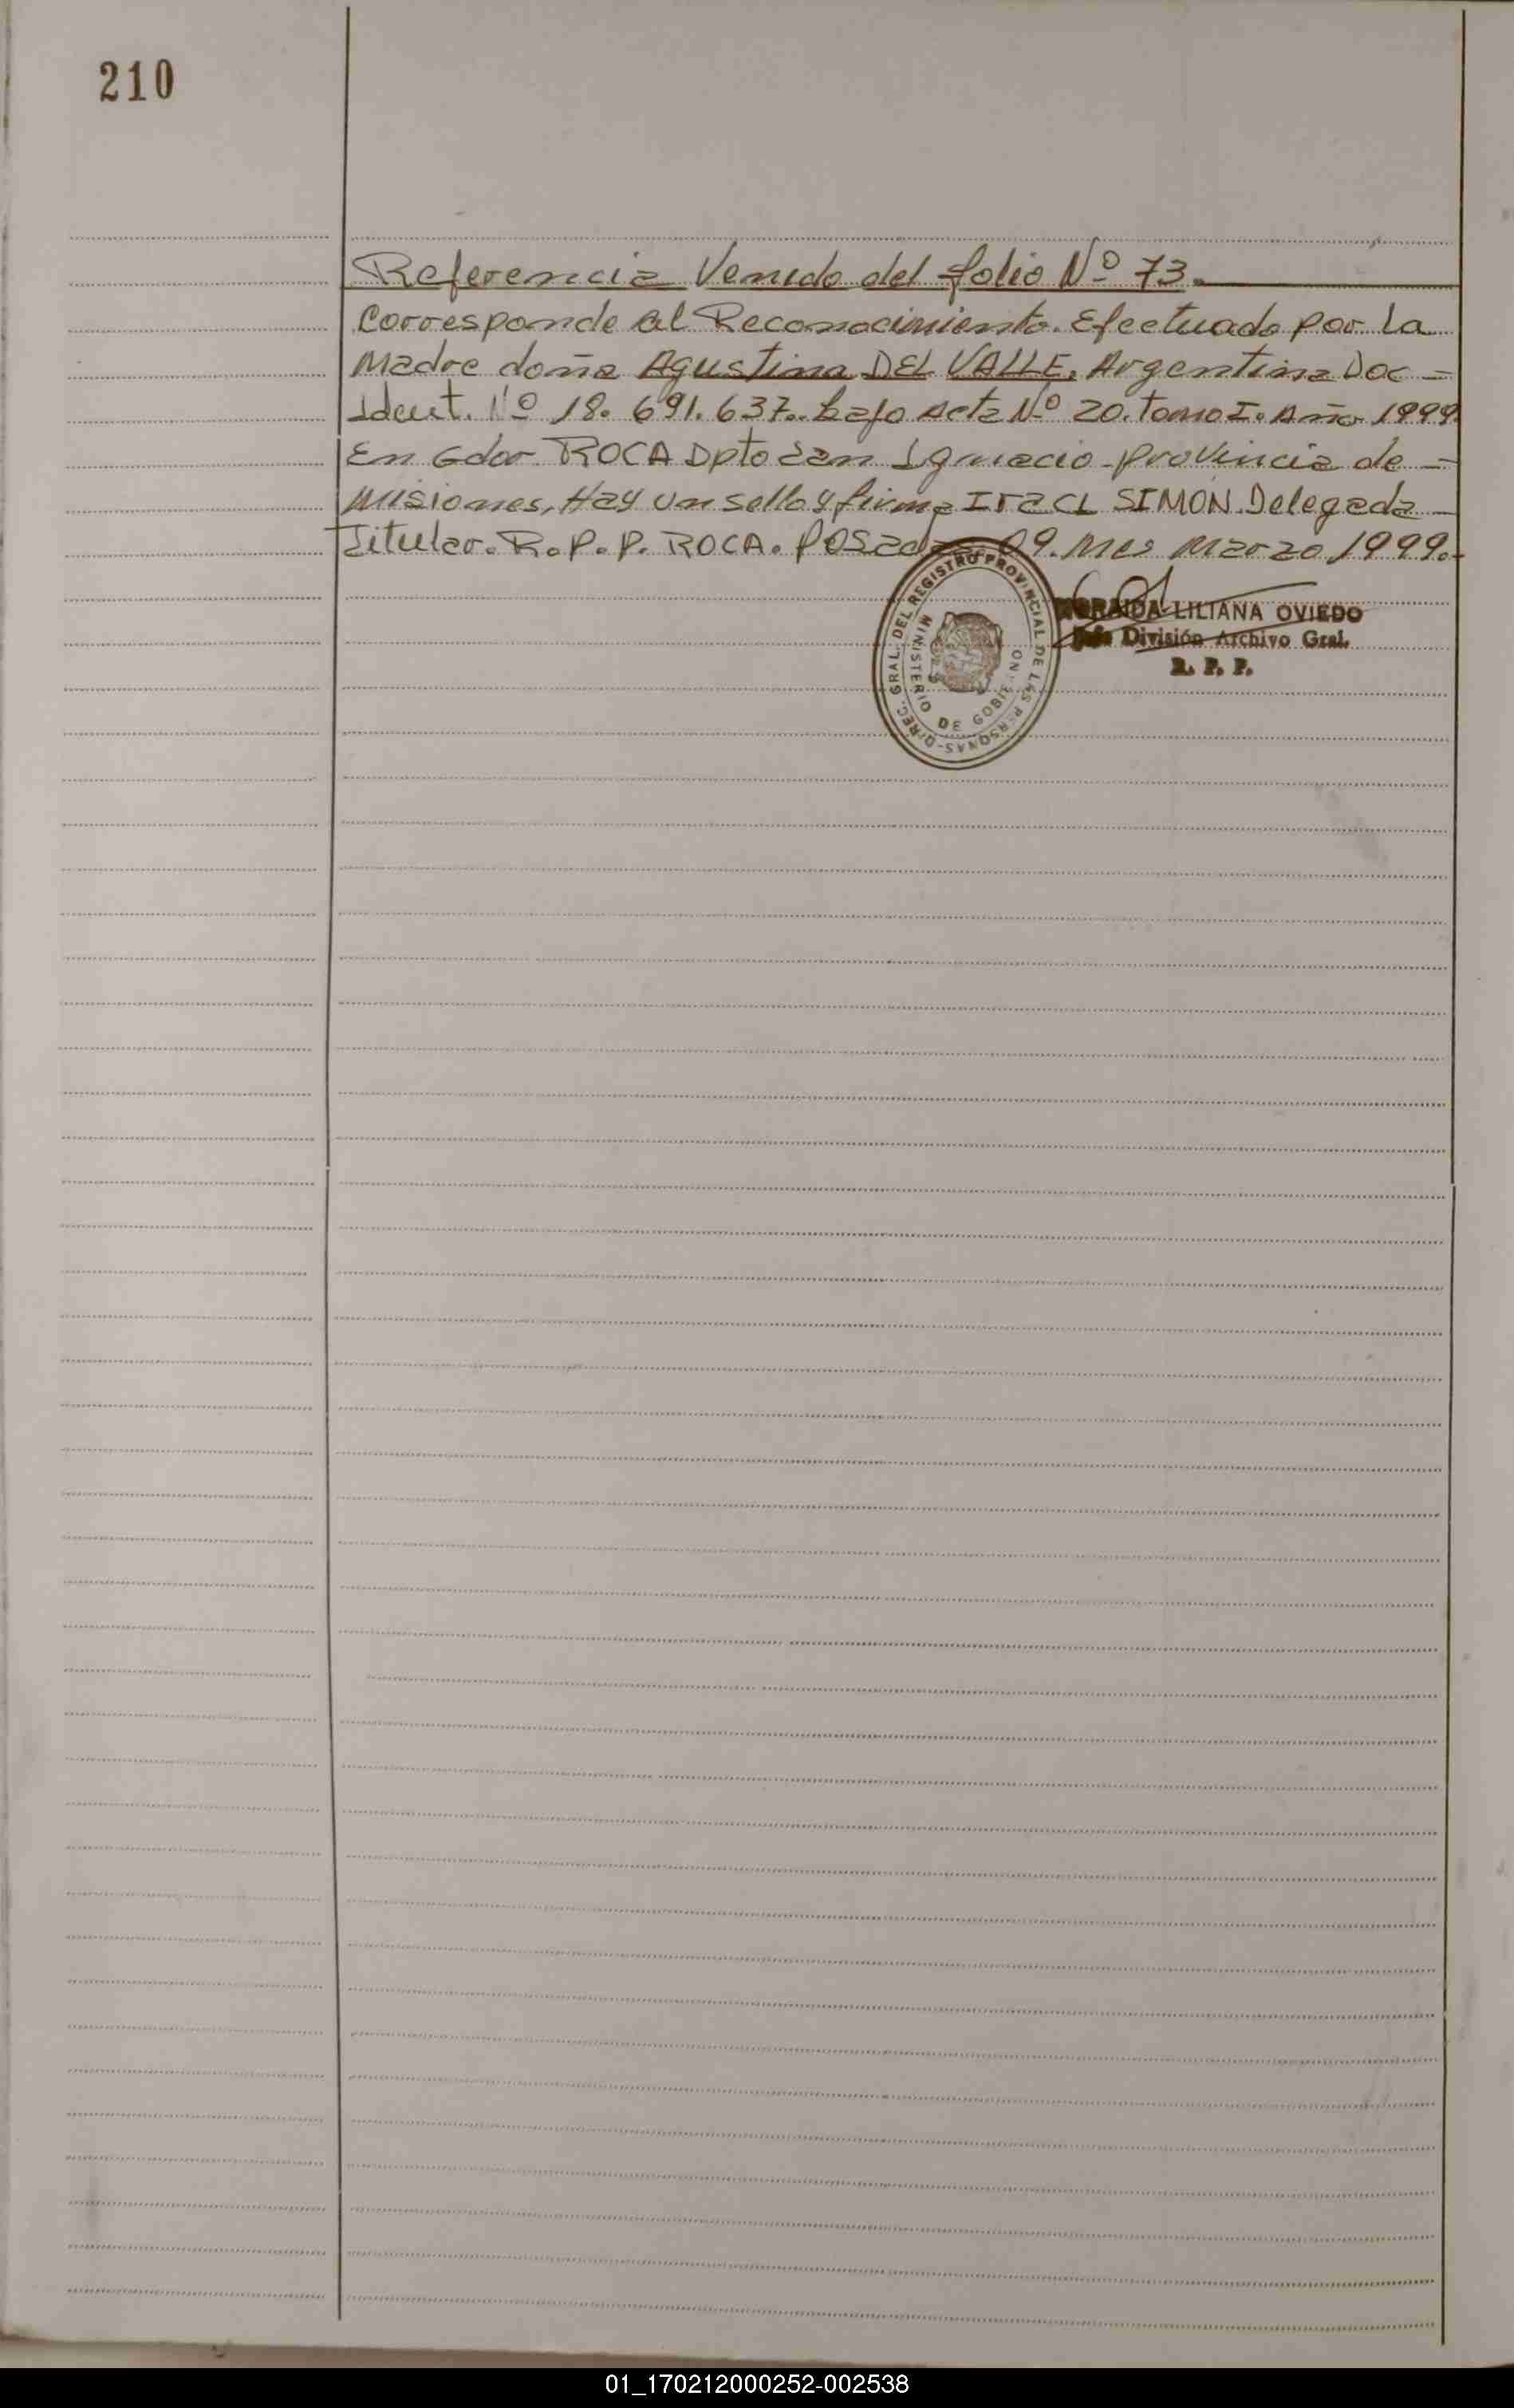 210
Referencia Venido del folio Nº 73.
Corresponde al Reconocimiento. Efectuado por La
Madre doña Agustina DEL VALLE. Argentina Doc -
Ident. Nº 18. 691. 637.. bajo Acta Nº 20. Tomo I. Año 1999.
En Gdor ROCA Dpto San Ignacio - provincia de -
Misiones, Hay un sello y firma Iraci SIMON. Delegada -
Titular. R. P. P. ROCA. Posadas 09. Mes Marzo 1999.-
DIREC. GRAL. DEL REGISTRO PROVINCIAL DE LAS PERSONAS -
MINISTERIO DE GOBIERNO
LILIANA OVIEDO
Jefe División Archivo Gral.
R. P. P.
01_170212000252-002538